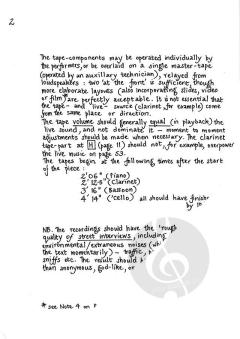 2
The tape-components may be operated individually by
the performers, or be overlaid on a single master-tape
(operated by an auxiliary technician), relayed from
loudspeakers : two 'at the front' is sufficient, though
more elaborate layouts (also incorporating slides, video
or film) are perfectly acceptable. It is not essential that
the tape- and 'live'- source (clarinet, for example) come
from the same place or direction.
The tape volume should generally equal (in playback) the
live sound, and not dominate it — moment to moment
adjustments should be made when necessary. The clarinet
tape-part at H (page 11) should not, for example, overpower
the live music on page 53.
The tapes begin at the following times after the start
of the piece :
2' 06" (Piano)
2' 12·5" (Clarinet)
3' 16" (Bassoon)
4' 14" ('cello) all should have finished
by
NB. The recordings should have the 'rough
quality of street interviews, including
environmental/extraneous noises
the text momentarily) – traffic,
sniffs etc. The result should
than anonymous, God-like, or
* see Note 4 on